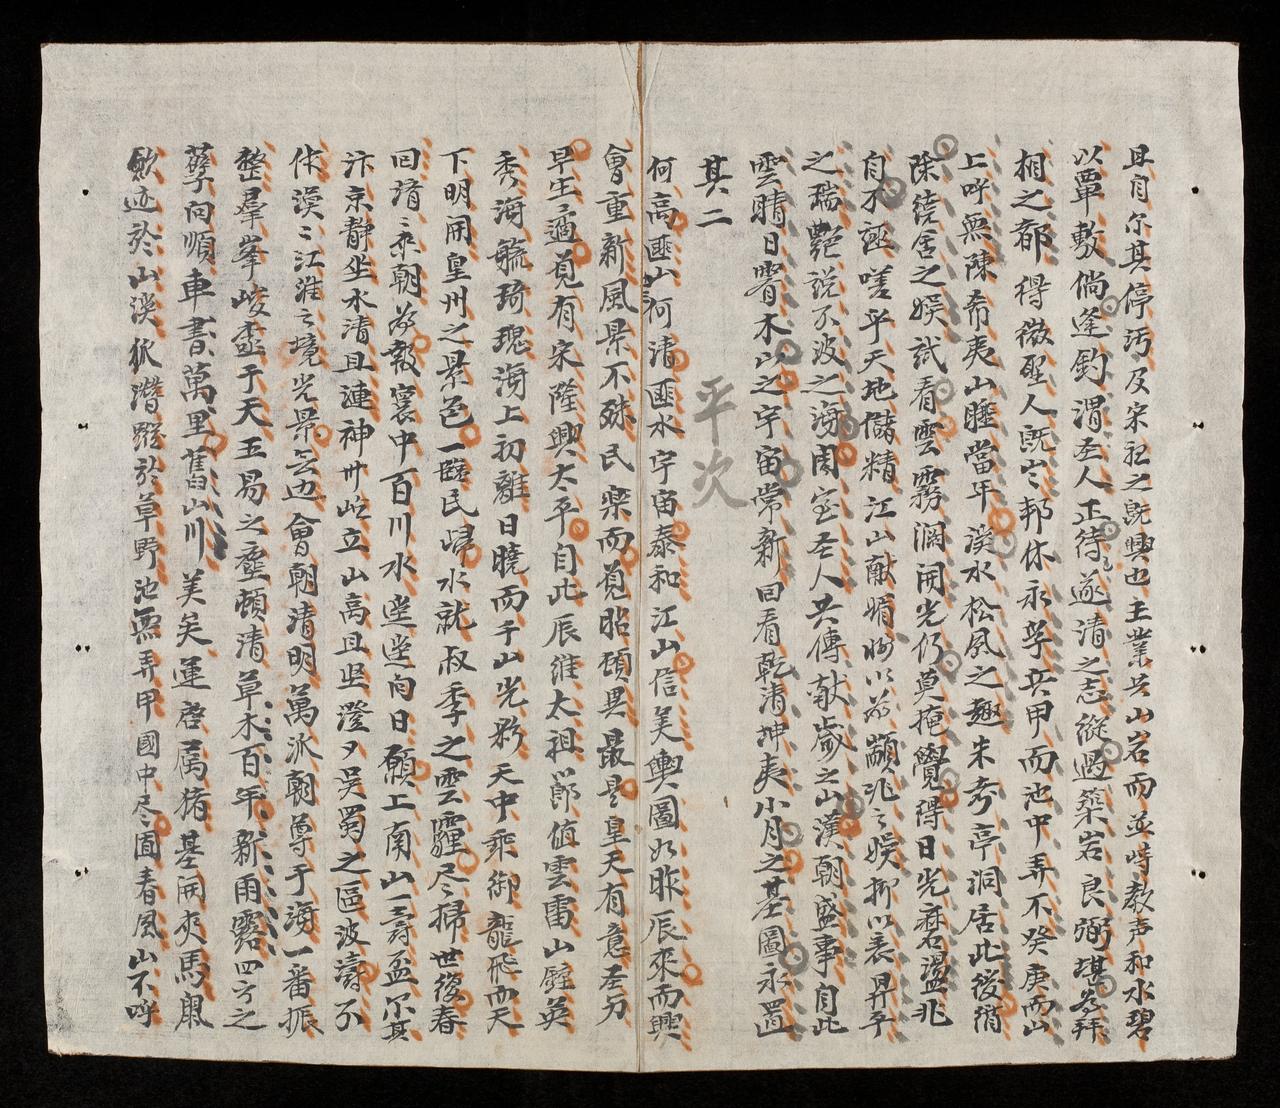 且自尔其停汚及宋祖之既興也王業共山岩而並峙教声和水碧
以覃敷倘逢釣渭圣人正待遂清之志縱遇築岩良弼堪為拜
相之都得微聖人既安邦休永孚兵甲而池中弄不癸庚而山
上呼無陳希夷山睡當年渓水松風之趣朱考亭洞居此後消
除詩舍之娯試看雲霧洞開光仍莫掩覺得日光磨盪兆
自不誣嗟乎天地儲精江山献媚将以為顯兆之娯抑以表昇平
之瑞艷說不波之湧周室圣人共傳献歳之山漢朝盛事自此
雲晴日霽水山之宇宙常新回看乾清坤夷小月之基圖永置
其二
平次
何高匪山何清匪水宇宙泰和江山信美輿圖如昨辰來而興
會重新風景不殊民樂而覓昭碩異最是皇天有意圣男
早生適覓有宋陞興太平自此辰維太祖節值雲雷山屋英
秀海毓琦瑰海上初離日曉而千山光彩天中乘御龍飛而天
下明開皇州之景色一臨民歸水就叔季之雲霾尽掃世復春
回清之來朝为報寰中百川水迣迣向日願上南山一壽盃尔其
汴京靜坐水清且漣神卅屹立山高且坚澄夕吴蜀之區波濤不
作漠〻江淮之境光景無边會朝清明萬派朝尊于海一番振
整羣峯峻宝于天五易之塵頓清草木百年新雨露四方之
孽向順車書萬里舊山川美矣運啓属猪基開夾馬鼠
歛迹於山溪狐潛踪於草野池無弄甲國中尽囿春風山不呼